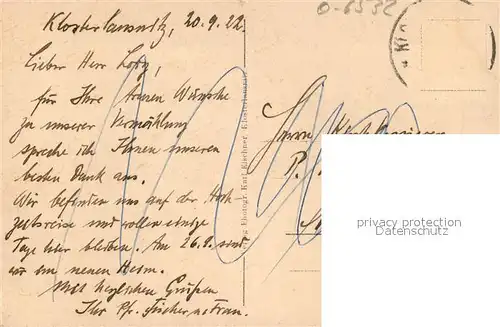 Klosterlausnitz, 20.9.22.
0-6532
Klo
Lieber Herr
für Ihre Wünsche
zu unserer Vermählung
spreche ich Ihnen unseren
besten Dank aus.
Wir befinden uns auf der Hoch-
zeitsreise und wollen einige
Tage hier bleiben. Am 26.9. sind
wir im neuen Heim.
Mit herzlichen Grüßen
Ihr Fischer u. Frau.
Photogr. Karl Fischer, Klosterlausnitz
Herrn
privacy protection